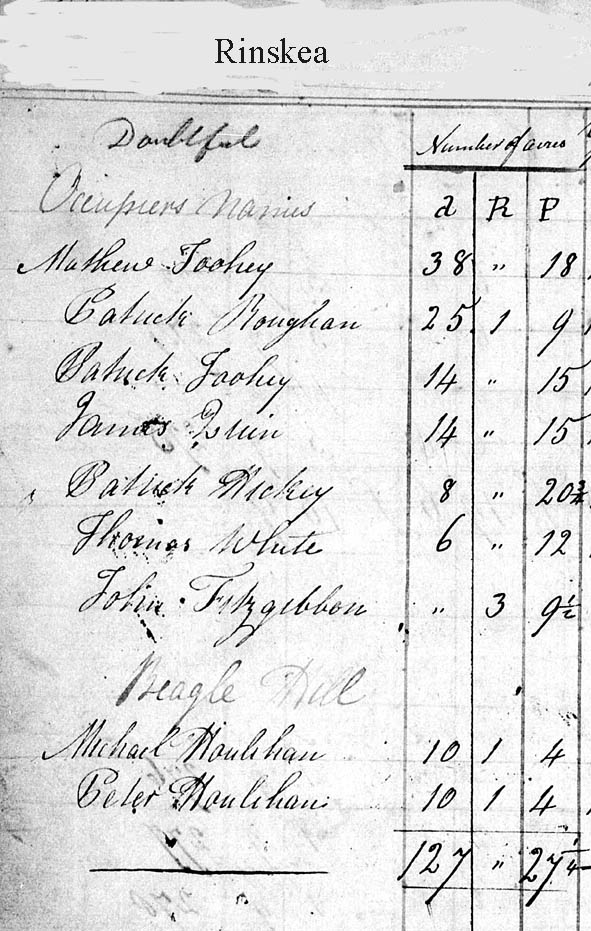 Rinskea
Doubtful Number of acres
Occupiers Names a R P
Mathew Toohey 38 " 18
Patrick Roughan 25 1 9
Patrick Toohey 14 " 15
James Quin 14 " 15
Patrick Hickey 8 " 20 3/4
Thomas White 6 " 12
John Fitzgibbon " 3 9 1/2
Beagle Hill
Michael Houlihan 10 1 4
Peter Houlihan 10 1 4
127 " 27 1/4